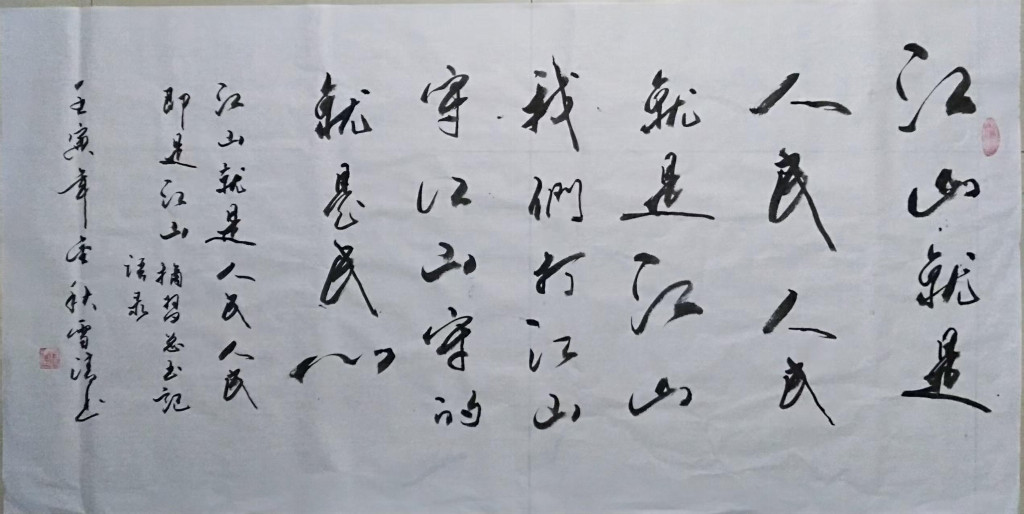 江山就是
人民人民
就是江山
我們打江山
守江山守的
就是民心
江山就是人民人民
即是江山摘習总书記
语录
壬寅年金秋雪清书